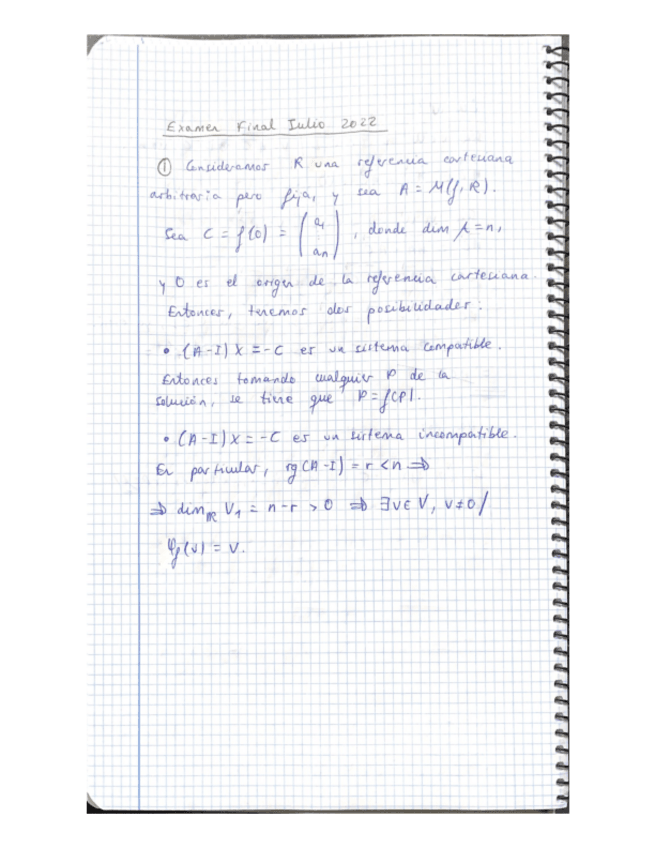 Examen Final Julio 2022
① Consideramos R una referencia cartesiana
arbitraria pero fija, y sea A = M(f, R).
Sea C = f(O) = (a₁ ⋮ aₙ), donde dim A = n,
y O es el origen de la referencia cartesiana.
Entonces, tenemos dos posibilidades:
• (A-I) X = -C es un sistema compatible.
Entonces tomando cualquier P de la
solución, se tiene que P = f(P).
• (A-I) X = -C es un sistema incompatible.
En particular, rg(A-I) = r < n ⇒
⇒ dim_ℝ V₁ = n-r > 0 ⇒ ∃v∈V, v≠0/
φ_f(v) = v.